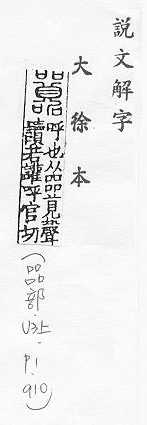 說文解字
大徐本
呼也从㗊莧聲
讀若讙呼官切
(㗊部.U3上.P.1.910)